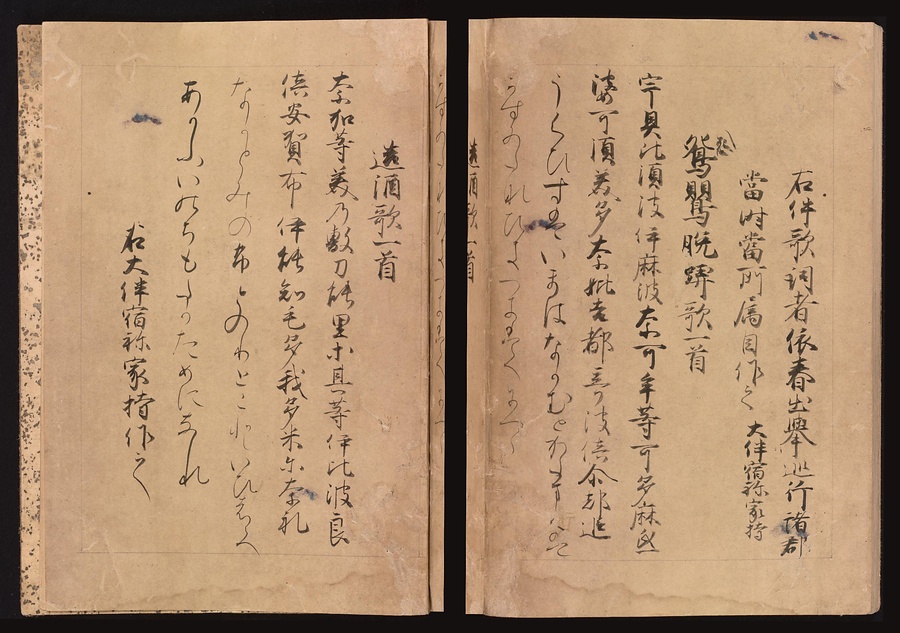 右件歌詞者依春出擧巡行諸郡
當時當所属目作之 大伴宿祢家持
怨鴬鸎晩哢歌一首
宇具比須波伊麻波奈可牟等可多麻氐
婆可須美多奈妣吉都奇波倍尓都追
うくひすはいまはなかむとかたまては
かすみたなひきつきはへにつゝ
造酒歌一首
奈加等美乃敷刀能里等其等伊比波良
倍安賀布伊能知毛多我多米尓奈礼
なかとみのふとのりとこといひはらへ
あかふいのちもたかためになれ
右大伴宿祢家持作之